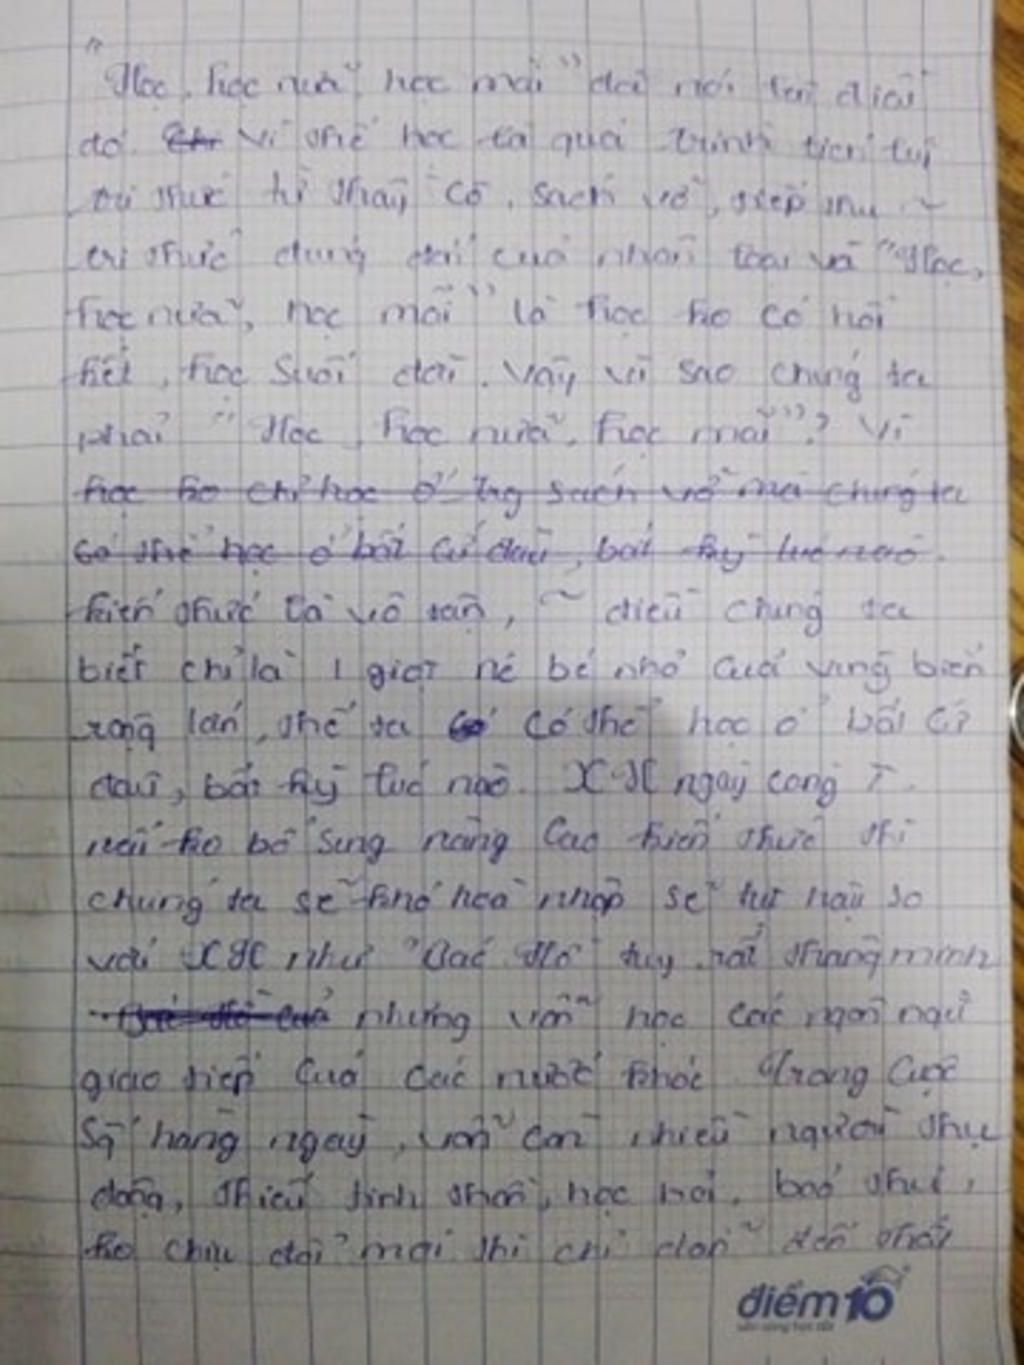 "Học, học nữa, học mãi" đã nói lên điều
đó. Vì thế học là quá trình tích luỹ
tri thức từ thầy cô, sách vở, tiếp thu ~
tri thức đúng đắn của nhân loại và "Học,
học nữa, học mãi" là học ko có hồi
kết, học suốt đời. Vậy vì sao chúng ta
phải "Học, học nữa, học mãi"? Vì
học ko chỉ học ở trg sách vở mà chúng ta
có thể học ở bất cứ đâu, bất kỳ lúc nào.
kiến thức là vô tận, ~ điều chúng ta
biết chỉ là 1 giọt bé nhỏ của vùng biển
rộng lớn, thế ta có thể học ở bất cứ
đâu, bất kỳ lúc nào. XH ngày càng
nếu ko bổ sung nâng cao kiến thức thì
chúng ta sẽ khó hoà nhập sẽ tụt hậu so
với XH như "Bác Hồ" tuy rất thông minh
nhưng vẫn học các ngôn ngữ
giao tiếp của các nước khác. Trong cuộc
sg hàng ngày, vẫn còn nhiều người thụ
động, thiếu tinh thần, học hỏi, bảo thủ,
ko chịu đổi mới thì chỉ dẫn đến thất
điểm10